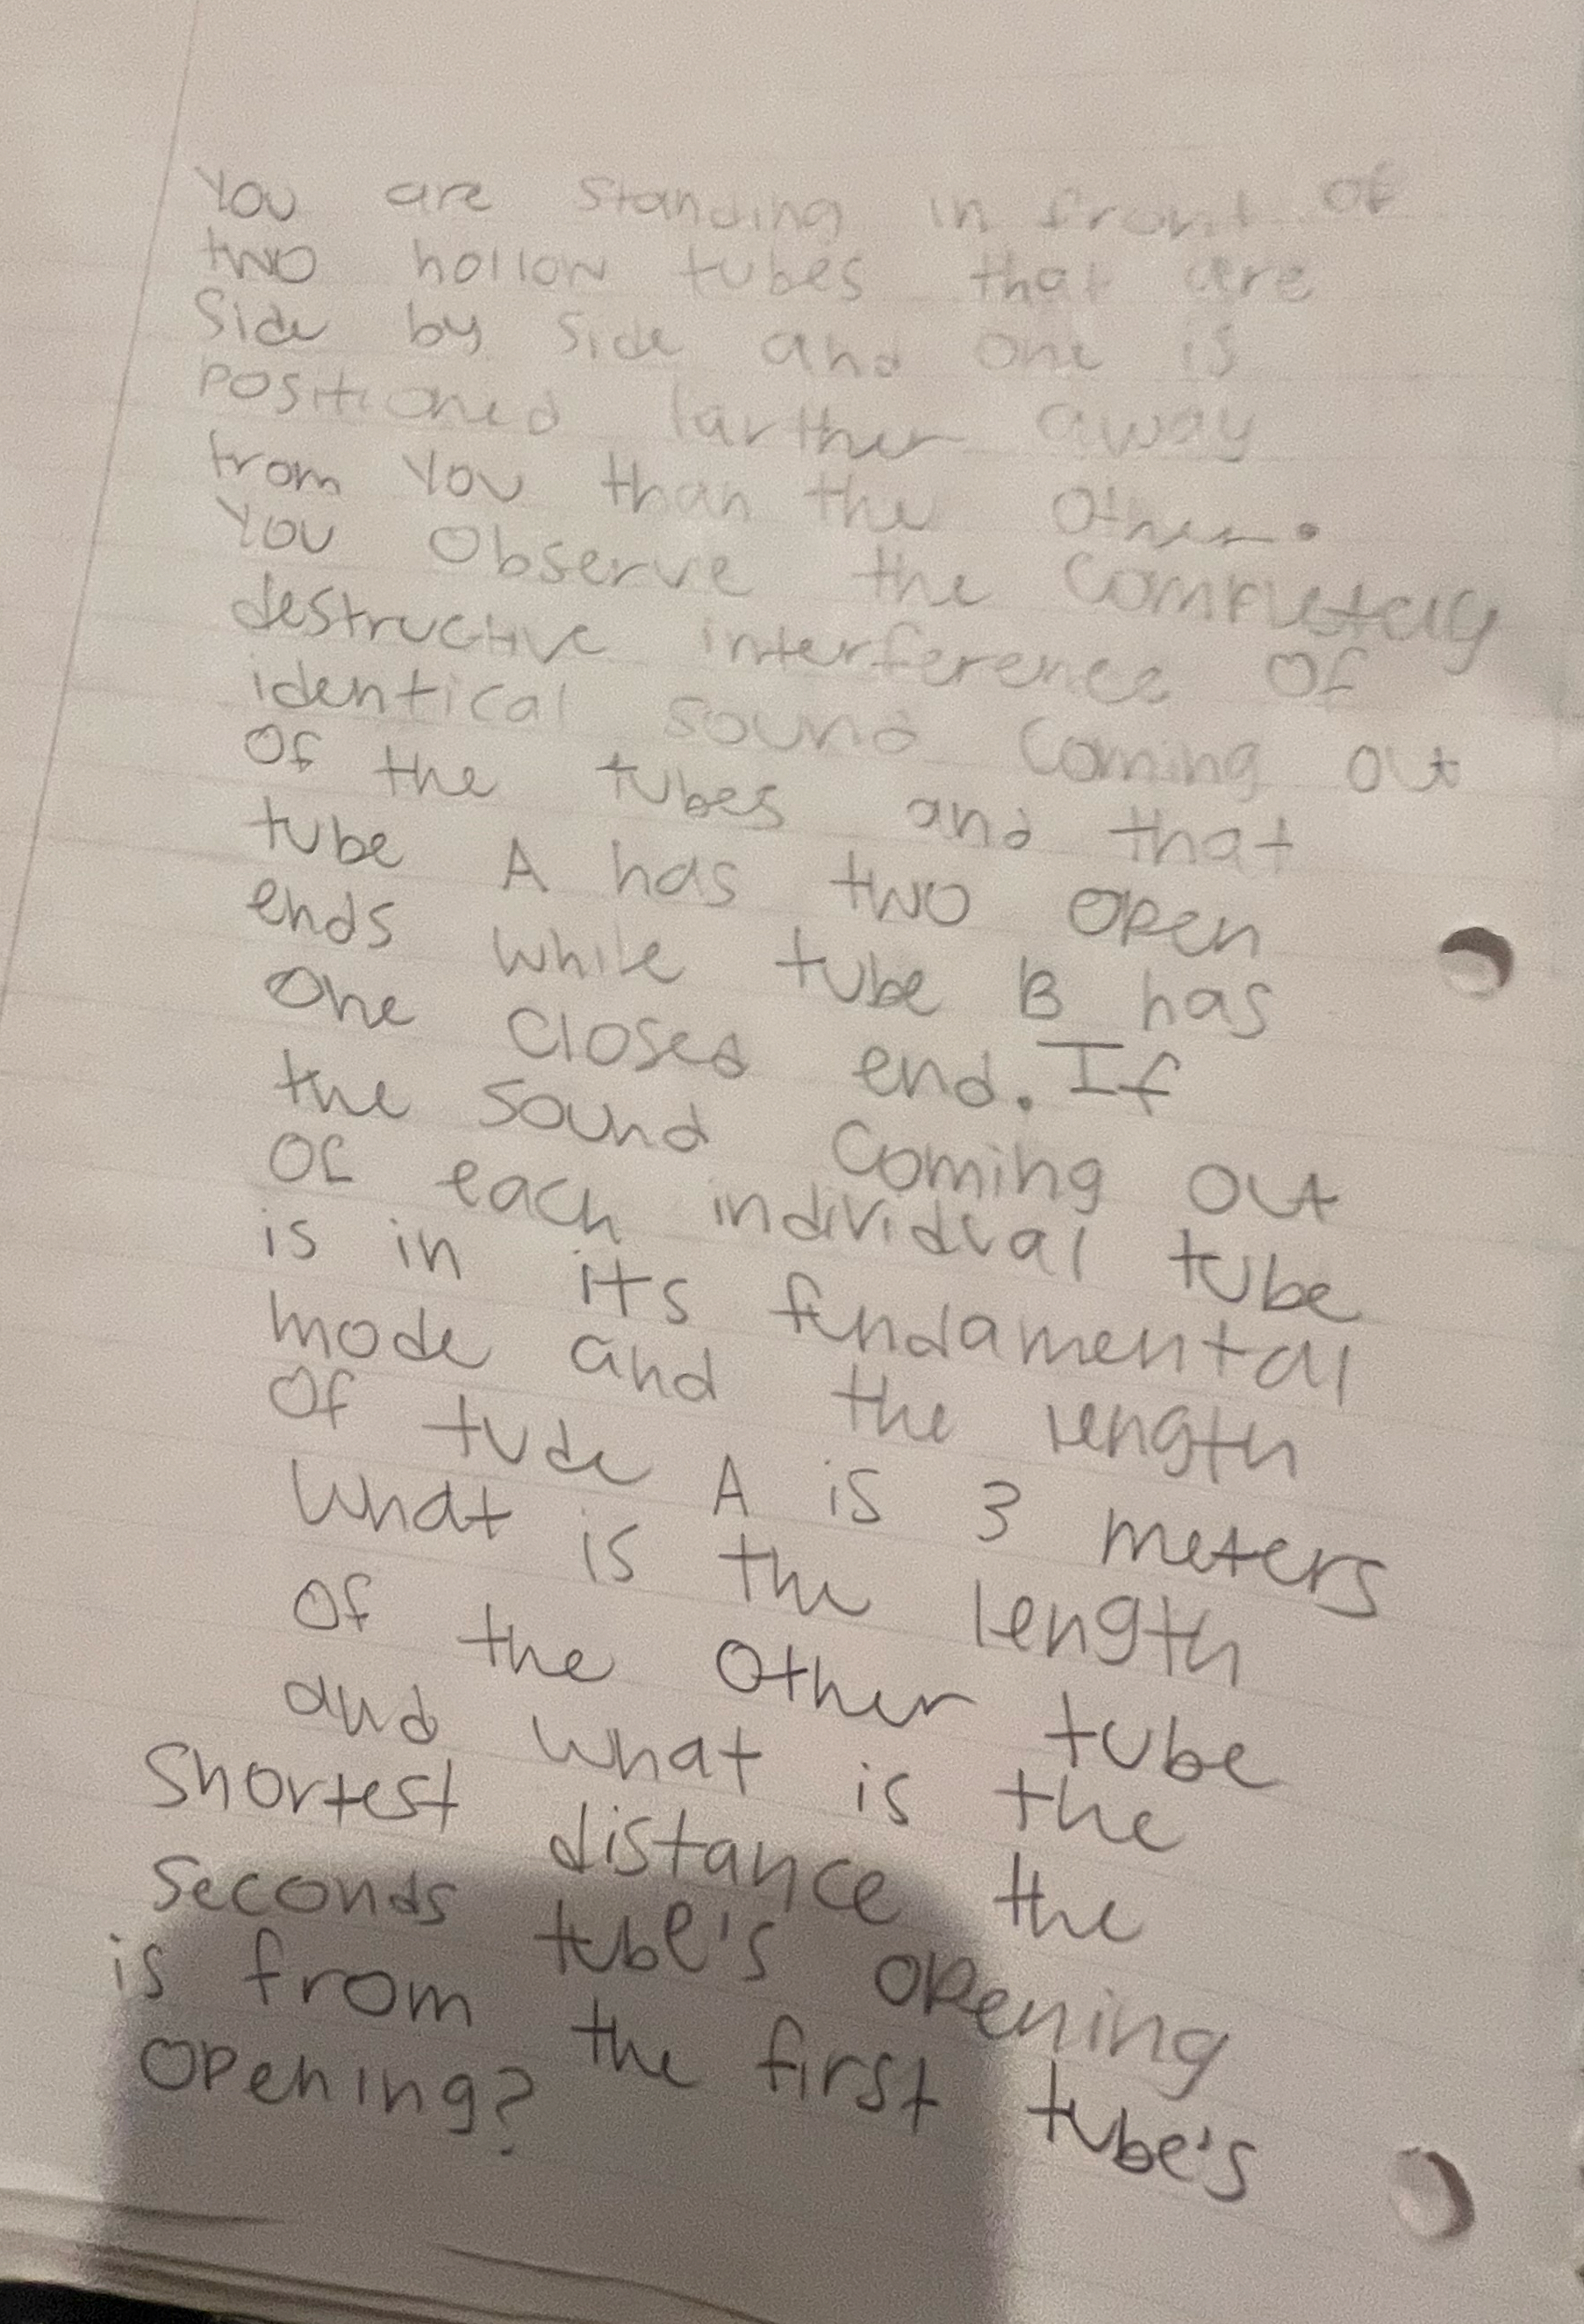 You are standing in front of
two hollow tubes that are
Side by side and one is
positioned farther away
from you than the other.
You observe the completely
destructive interference of
identical sound coming out
of the tubes and that
tube A has two open
ends while tube B has
one closed end. If
the sound coming out
of each individual tube
is in its fundamental
mode and the length
of tude A is 3 meters
what is the length
of the other tube
and what is the
shortest distance the
seconds tube's opening
is from the first tube's
opening?